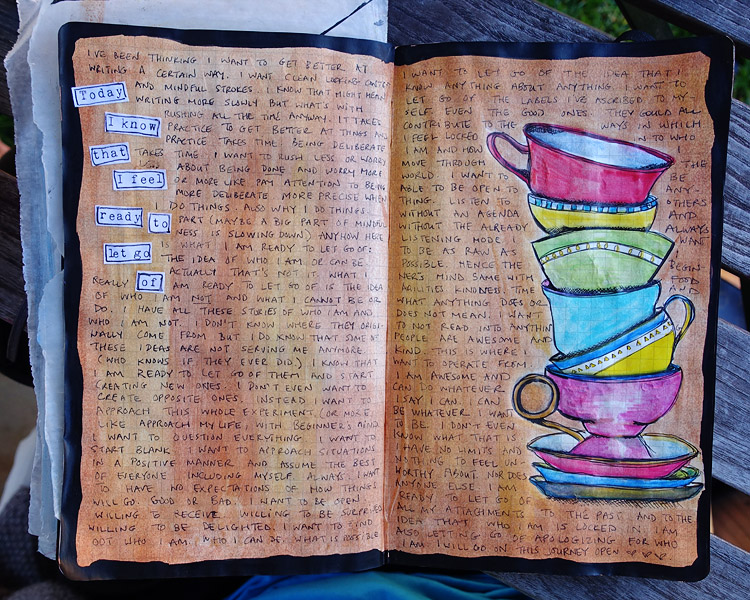 I'VE BEEN THINKING I WANT TO GET BETTER AT
WRITING A CERTAIN WAY. I WANT CLEAN LOOKING
Today
AND MINDFUL STROKES. I KNOW THAT MIGHT MEAN
WRITING MORE SLOWLY BUT WHAT'S WITH
RUSHING ALL THE TIME ANYWAY. IT TAKES
I know
PRACTICE TO GET BETTER AT THINGS AND
PRACTICE TAKES TIME. BEING DELIBERATE
that
TAKES TIME. I WANT TO RUSH LESS OR WORRY
LESS ABOUT BEING DONE AND WORRY MORE
I feel
OR MORE LIKE PAY ATTENTION TO BEING
MORE DELIBERATE, MORE PRECISE WHEN
I DO THINGS. ALSO WHY I DO THINGS.
ready to
PART (MAYBE A BIG PART OF MINDFUL
NESS IS SLOWING DOWN) ANYHOW HERE
IS WHAT I AM READY TO LET GO OF:
let go
THE IDEA OF WHO I AM OR CAN BE.
ACTUALLY THAT'S NOT IT. WHAT I
REALLY
of
AM READY TO LET GO OF IS THE IDEA
OF WHO I AM NOT AND WHAT I CANNOT BE OR
DO. I HAVE ALL THESE STORIES OF WHO I AM AND
WHO I AM NOT. I DON'T KNOW WHERE THEY ORIGI-
NALLY COME FROM BUT I DO KNOW THAT SOME OF
THESE IDEAS ARE NOT SERVING ME ANYMORE.
(WHO KNOWS IF THEY EVER DID.) I KNOW THAT
I AM READY TO LET GO OF THEM AND START
CREATING NEW ONES. I DON'T EVEN WANT TO
CREATE OPPOSITE ONES. INSTEAD I WANT TO
APPROACH THIS WHOLE EXPERIMENT (OR MORE
LIKE APPROACH MY LIFE, WITH BEGINNER'S MIND.
I WANT TO QUESTION EVERYTHING. I WANT TO
START BLANK. I WANT TO APPROACH SITUATIONS
IN A POSITIVE MANNER AND ASSUME THE BEST
OF EVERYONE INCLUDING MYSELF. ALWAYS. I WANT
TO HAVE NO EXPECTATIONS OF HOW THINGS
WILL GO. GOOD OR BAD. I WANT TO BE OPEN
WILLING TO RECEIVE. WILLING TO BE SURPRISED
WILLING TO BE DELIGHTED. I WANT TO FIND
OUT WHO I AM. WHO I CAN BE. WHAT IS POSSIBLE
I WANT TO LET GO OF THE IDEA THAT I
KNOW ANYTHING ABOUT ANYTHING. I WANT TO
LET GO OF THE LABELS I'VE ASCRIBED TO MY-
SELF. EVEN THE GOOD ONES. THEY COULD ALL
CONTRIBUTE TO THE WAYS IN WHICH
I FEEL LOCKED IN TO WHO
I AM AND HOW I
MOVE THROUGH THE
WORLD. I WANT TO BE
ABLE TO BE OPEN TO ANY-
THING. LISTEN TO OTHERS
WITHOUT AN AGENDA AND
WITHOUT THE ALREADY ALWAYS
LISTENING MODE. I WANT
TO BE AS RAW AS
POSSIBLE. HENCE THE BEGIN-
NER'S MIND. SAME WITH FOOD
ABILITIES. KINDNESS. TIME AND
WHAT ANYTHING DOES OR
DOES NOT MEAN. I WANT
TO NOT READ INTO ANYTHIN
PEOPLE ARE AWESOME AND
KIND. THIS IS WHERE I
WANT TO OPERATE FROM
I AM AWESOME AND I
CAN DO WHATEVER
I SAY I CAN. I CAN
BE WHATEVER I WANT
TO BE. I DON'T EVEN
KNOW WHAT THAT IS
I HAVE NO LIMITS AND
NOTHING TO FEEL UN-
WORTHY ABOUT NOR DOES
ANYONE ELSE. I AM
READY TO LET GO OF
ALL MY ATTACHMENTS TO THE PAST AND TO THE
IDEA THAT WHO I AM IS LOCKED IN. I AM
ALSO LETTING GO OF APOLOGIZING FOR WHO
I AM. I WILL GO ON THIS JOURNEY OPEN ♡ ♡ ♡